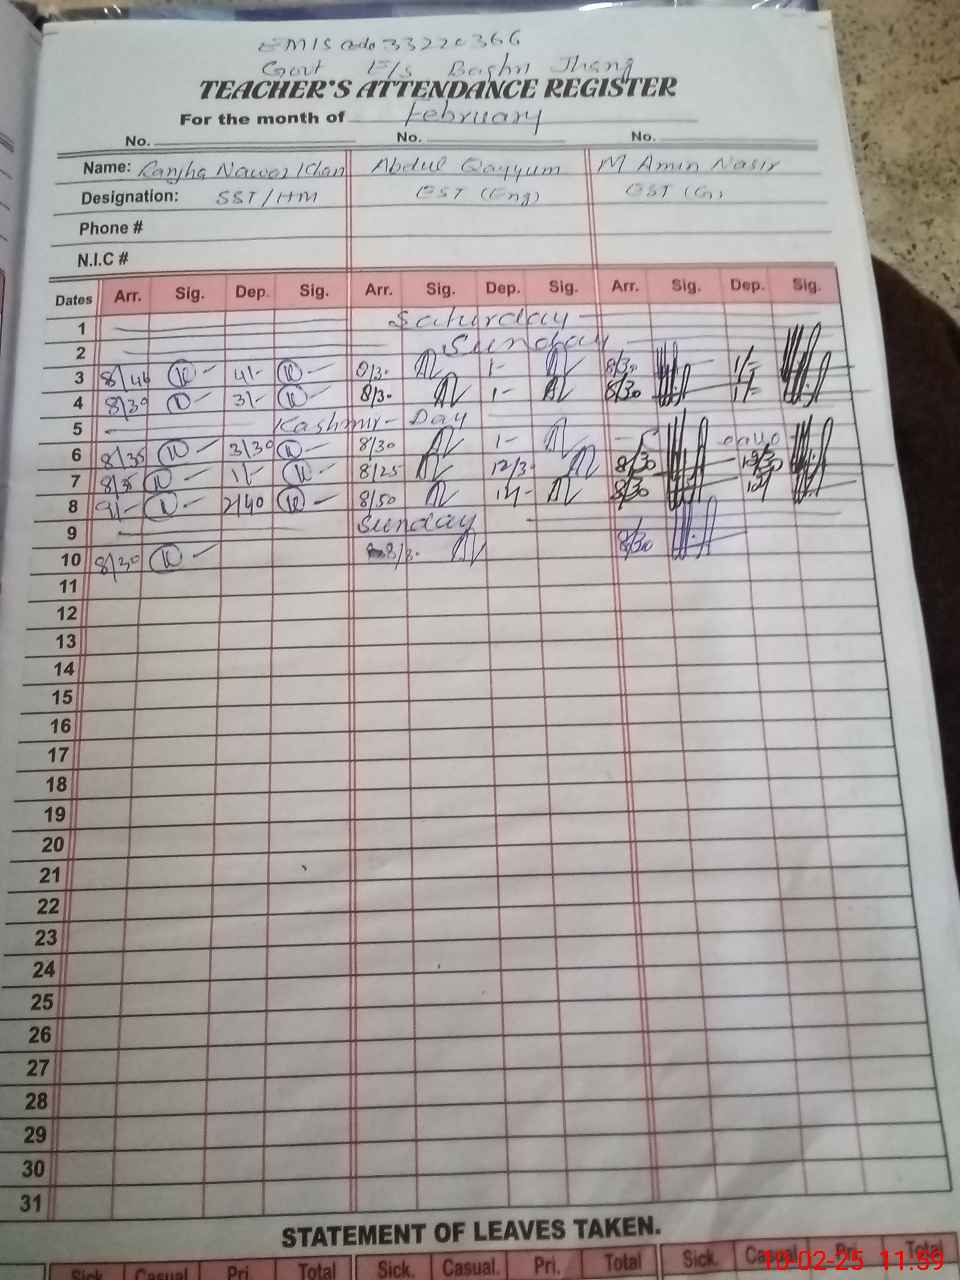 EMIS Code 33220366
Govt E/s Baghri Jhang
TEACHER'S ATTENDANCE REGISTER
For the month of February
No. No. No.
Name: Ranjha Nawaz Khan Abdul Qayyum M Amin Nasir
Designation: SST/HM EST (Eng) EST (G)
Phone #
N.I.C #
Dates Arr. Sig. Dep. Sig. Arr. Sig. Dep. Sig. Arr. Sig. Dep. Sig.
1 Saturday
2 Sunday
3 8/46 4/- 8/3- 1- 8/30 1/-
4 8/30 3/- 8/3- 1- 8/30 1/-
5 Kashmir - Day
6 8/35 3/30 8/30 1-
7 8/35 1/- 8/25 12/3- 8/30
8 9/- 2/40 8/50 8/30
9 Sunday
10 8/30 8/3- 8/30
11
12
13
14
15
16
17
18
19
20
21
22
23
24
25
26
27
28
29
30
31
STATEMENT OF LEAVES TAKEN.
Sick. Casual. Pri. Total Sick. Casual. Pri. Total Sick. Casual. Pri. Total
10-02-25 11:59